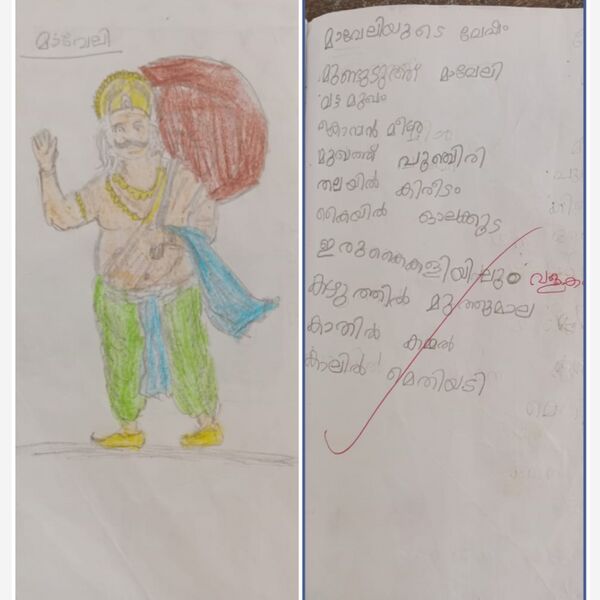 മാവേലി
മാവേലിയുടെ വേഷം
മുണ്ടുടുത്ത മാവേലി
വട്ട മുഖം
കൊമ്പൻ മീശ
മുഖത്ത് പുഞ്ചിരി
തലയിൽ കിരീടം
കൈയിൽ ഓലക്കുട
ഇരുകൈകളിയിലും വളകൾ
കഴുത്തിൽ മുത്തുമാല
കാതിൽ കമ്മൽ
കാലിൽ മെതിയടി